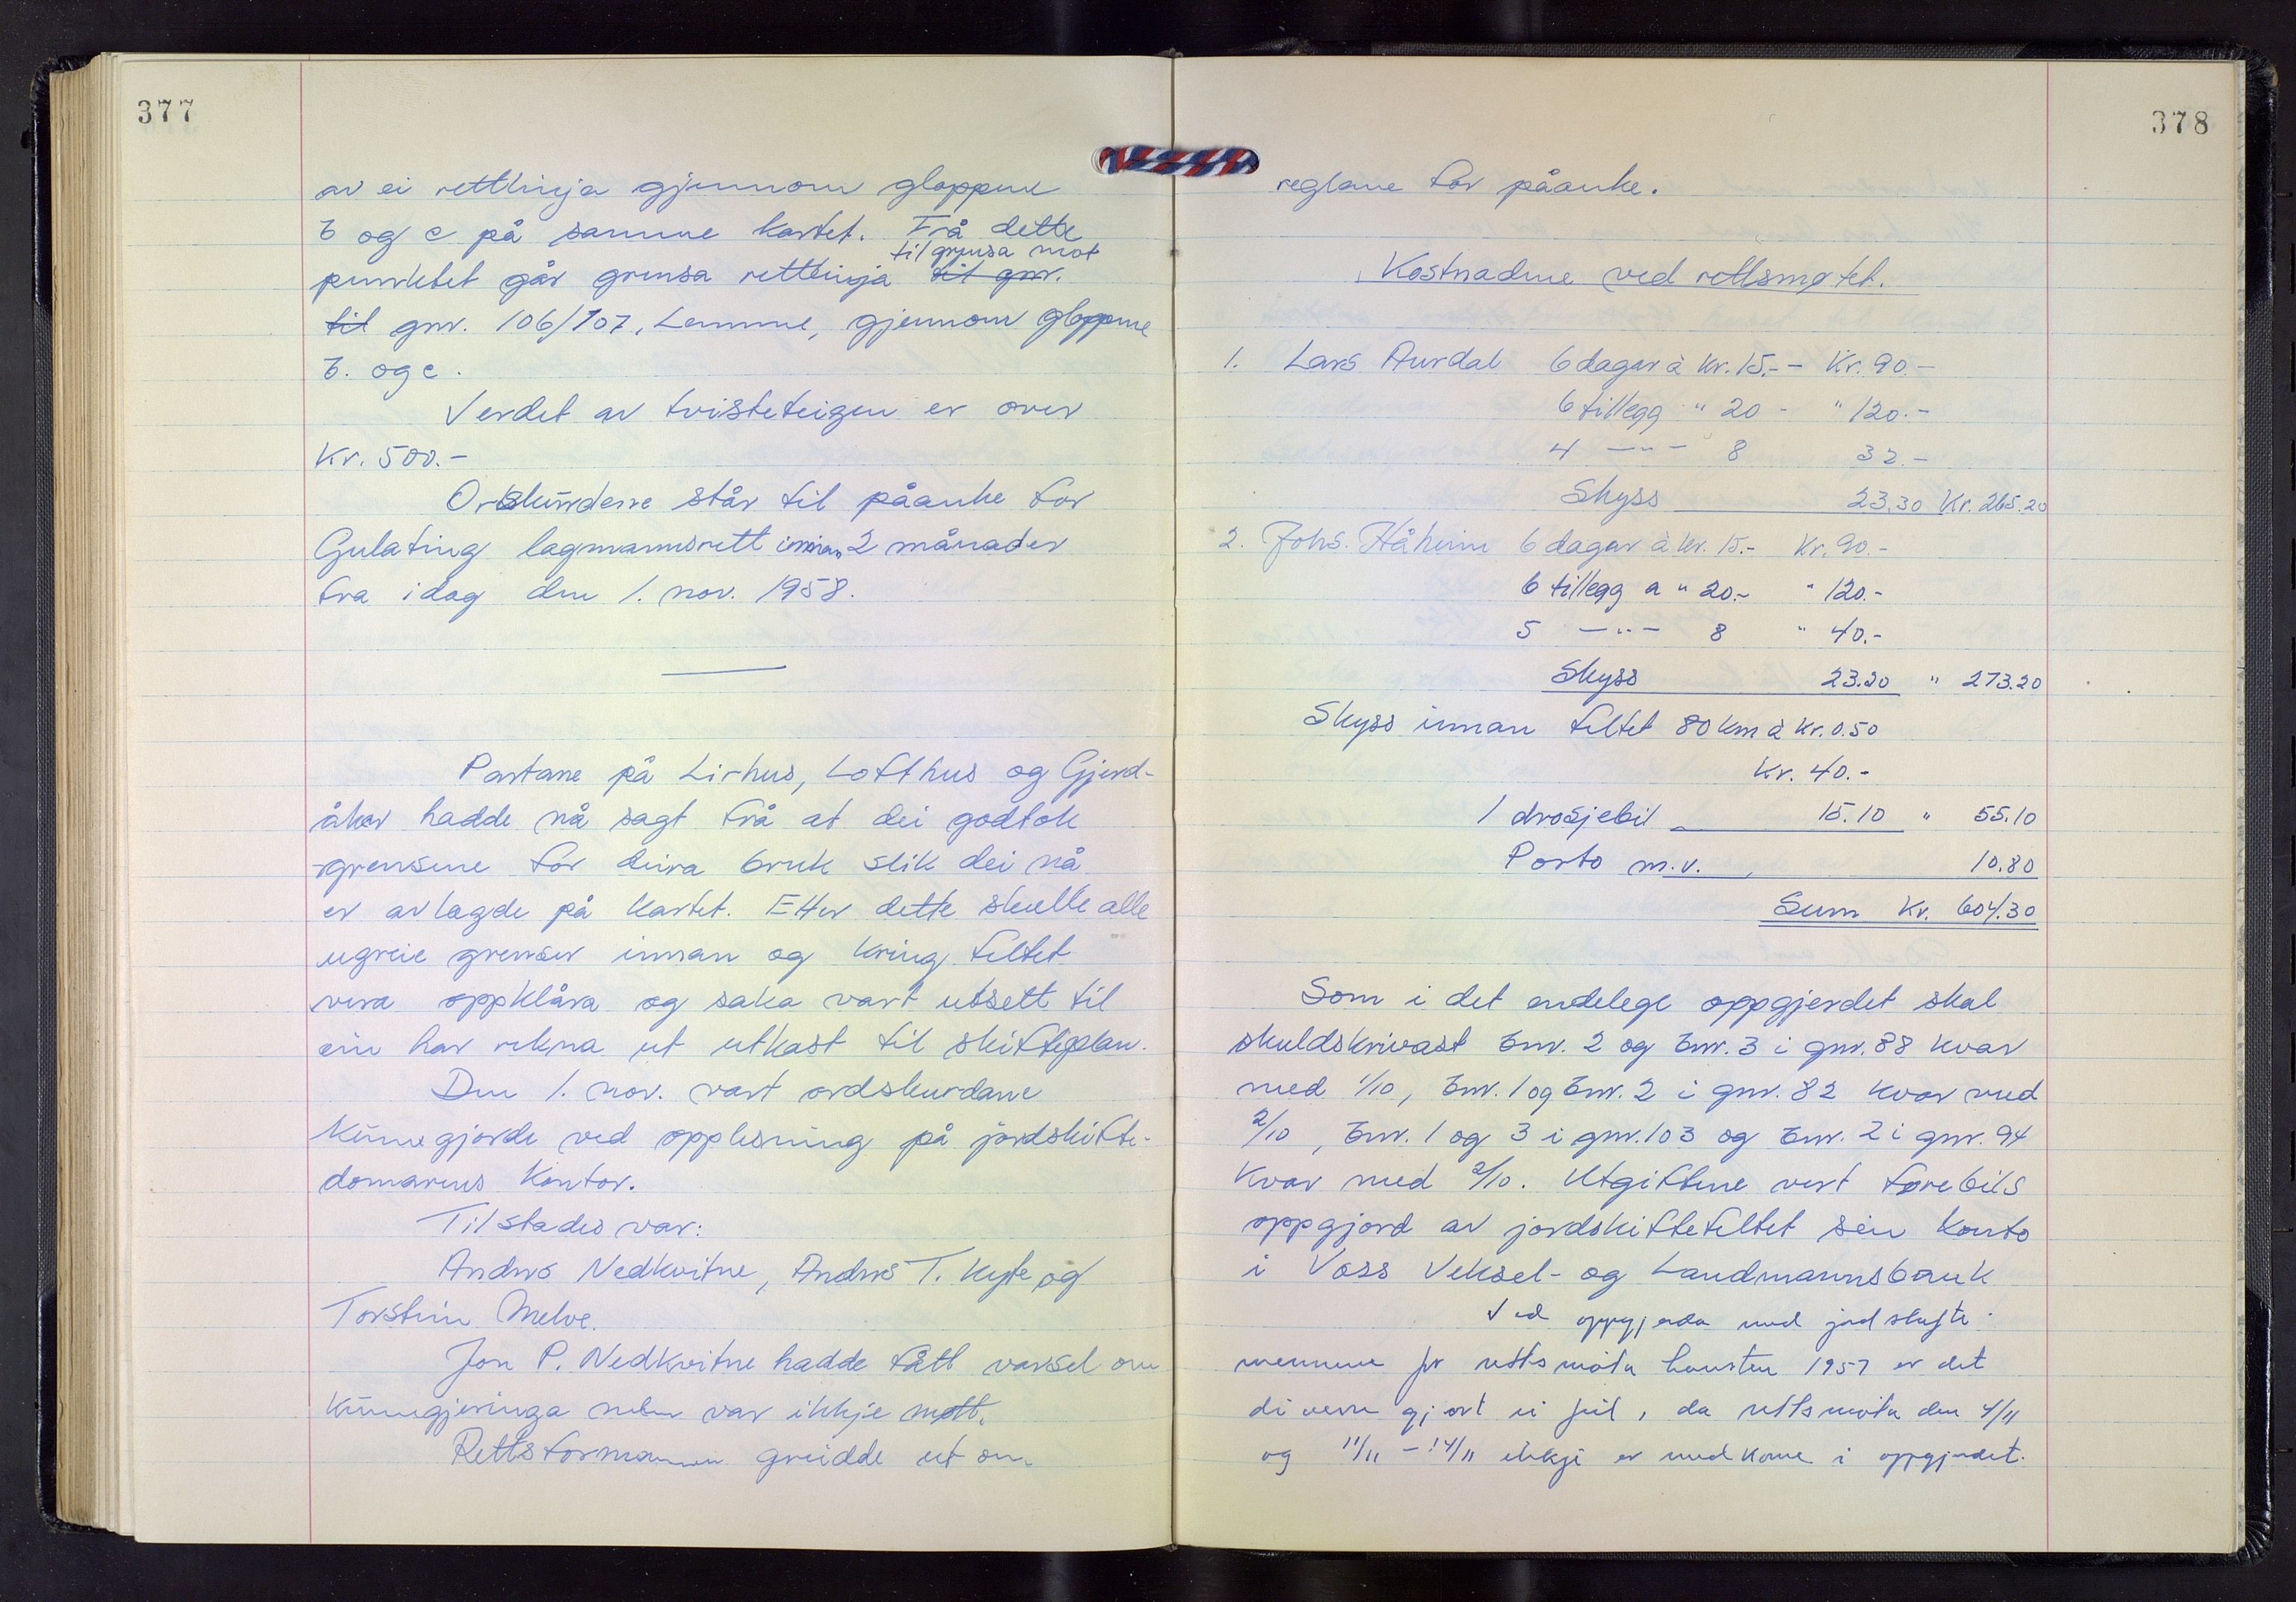 377
av ei rettlinja gjennom gloppene
b og c på samme kartet. Frå dette
til grensa mot
punktet går grensa rettlinja til gnr.
til gnr. 106/107, Lemme, gjennom gloppene
b. og c.
Verdet av tvisteteigen er over
Kr. 500.-
Ordskurdene står til påanke for
Gulating lagmannsrett innan 2 månader
fra idag den 1. nov. 1958.
Partane på Lirhus, Lofthus og Gjerd-
åker hadde nå sagt frå at dei godtok
grensene for deira bruk slik dei nå
er avlagde på kartet. Etter dette skulle alle
ugreie grenser innan og kring feltet
vera oppklåra og saka vart utsett til
ein har rekna ut utkast til skifteplan.
Den 1. nov. vart ordskurdane
kunngjorde ved opplesning på jordskifte-
domarens kontor.
Tilstades var:
Andres Nedkvitne, Andres T. Kyte og
Torstein Melve.
Jon P. Nedkvitne hadde fått varsel om
kunngjeringa men var ikkje møtt.
Rettsformannen greidde ut om
378
reglane for påanke.
Kostnadene ved rettsmøtet.
1. Lars Aurdal 6 dagar à kr. 15.- - Kr. 90.-
6 tillegg " 20 - " 120.-
4 -"- 8 32.-
Skyss 23.30 Kr. 265.20
2. Johs. Håheim 6 dagar à kr. 15.- Kr. 90.-
6 tillegg a " 20.- " 120.-
5 -"- 8 " 40.-
Skyss 23.20 " 273.20
Skyss innan feltet 80 km à kr. 0.50
Kr. 40.-
1 drosjebil 15.10 " 55.10
Porto m.v. 10.80
Sum Kr. 604.30
Som i det endelege oppgjerdet skal
skuldskrivast bnr. 2 og bnr. 3 i gnr. 88 kvar
med 1/10, bnr. 1 og bnr. 2 i gnr. 82 kvar med
2/10, bnr. 1 og 3 i gnr. 103 og bnr. 2 i gnr. 94
kvar med 2/10. Utgiftene vert førebils
oppgjord av jordskiftefeltet sin konto
i Voss Veksel- og Landmannsbank
Ved oppgjerda med jordskifte-
mennene for rettsmøta hausten 1957 er det
diverre gjort ei feil, da rettsmøta den 4/11
og 11/11 - 14/11 ikkje er medkome i oppgjerdet.